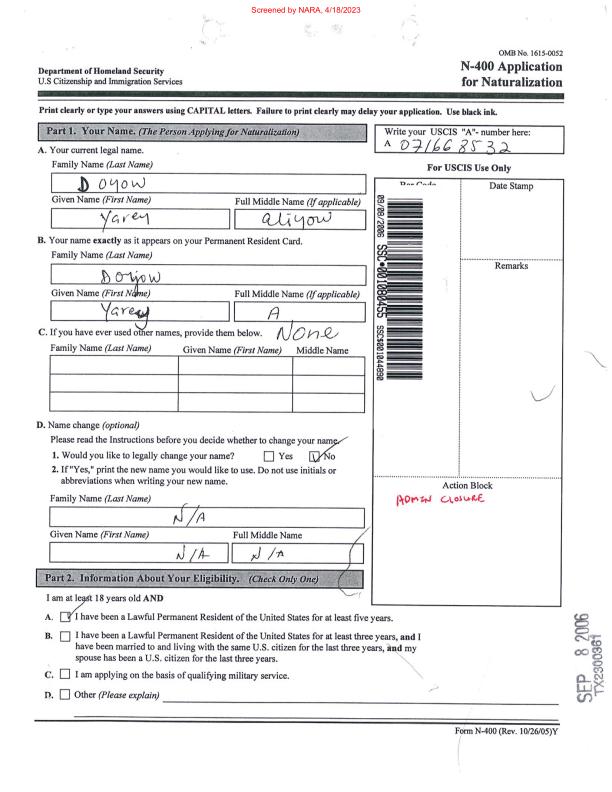 Screened by NARA, 4/18/2023
OMB No. 1615-0052
Department of Homeland Security
U.S Citizenship and Immigration Services
N-400 Application
for Naturalization
Print clearly or type your answers using CAPITAL letters. Failure to print clearly may delay your application. Use black ink.
Part 1. Your Name. (The Person Applying for Naturalization)
Write your USCIS "A"- number here:
A 071668532
A. Your current legal name.
Family Name (Last Name)
Doyow
Given Name (First Name) Full Middle Name (If applicable)
Yarey aliyow
B. Your name exactly as it appears on your Permanent Resident Card.
Family Name (Last Name)
Given Name (First Name) Full Middle Name (If applicable)
Yarey A
C. If you have ever used other names, provide them below. None
Family Name (Last Name) Given Name (First Name) Middle Name
D. Name change (optional)
Please read the Instructions before you decide whether to change your name.
1. Would you like to legally change your name? Yes No
2. If "Yes," print the new name you would like to use. Do not use initials or
abbreviations when writing your new name.
Family Name (Last Name)
N/A
Given Name (First Name) Full Middle Name
N/A N/A
For USCIS Use Only
Bar Code Date Stamp
09/08/2006 SSC*001080455 SSC$001044890
Remarks
Action Block
ADMIN CLOSURE
Part 2. Information About Your Eligibility. (Check Only One)
I am at least 18 years old AND
A. I have been a Lawful Permanent Resident of the United States for at least five years.
B. I have been a Lawful Permanent Resident of the United States for at least three years, and I
have been married to and living with the same U.S. citizen for the last three years, and my
spouse has been a U.S. citizen for the last three years.
C. I am applying on the basis of qualifying military service.
D. Other (Please explain)
SEP 8 2006
TX2300361
Form N-400 (Rev. 10/26/05)Y